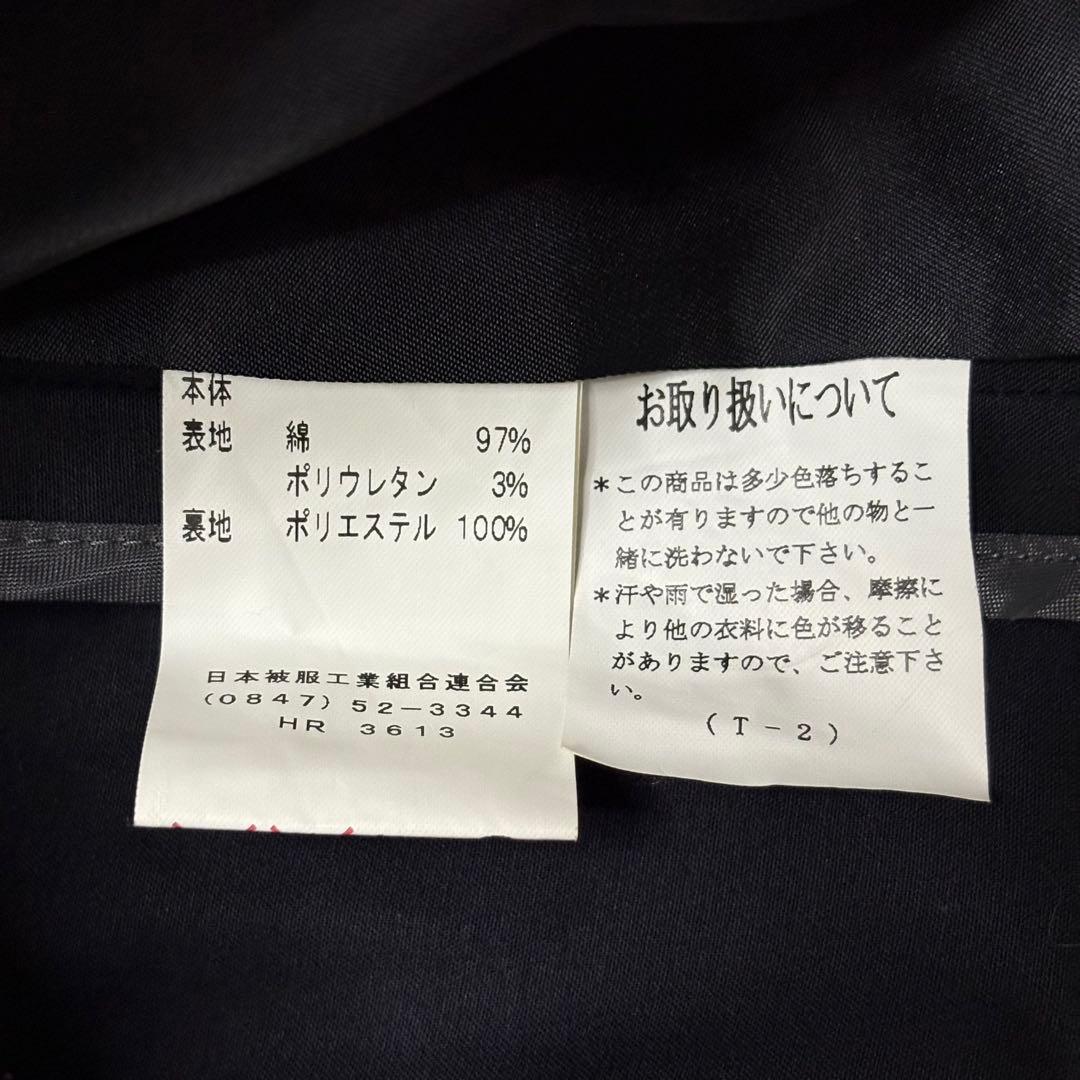 本体
表地 綿 97%
ポリウレタン 3%
裏地 ポリエステル 100%
日本被服工業組合連合会
(0847) 52-3344
HR 3613
お取り扱いについて
*この商品は多少色落ちするこ
とが有りますので他の物と一
緒に洗わないで下さい。
*汗や雨で湿った場合、摩擦に
より他の衣料に色が移ること
がありますので、ご注意下さ
い。
(T-2)